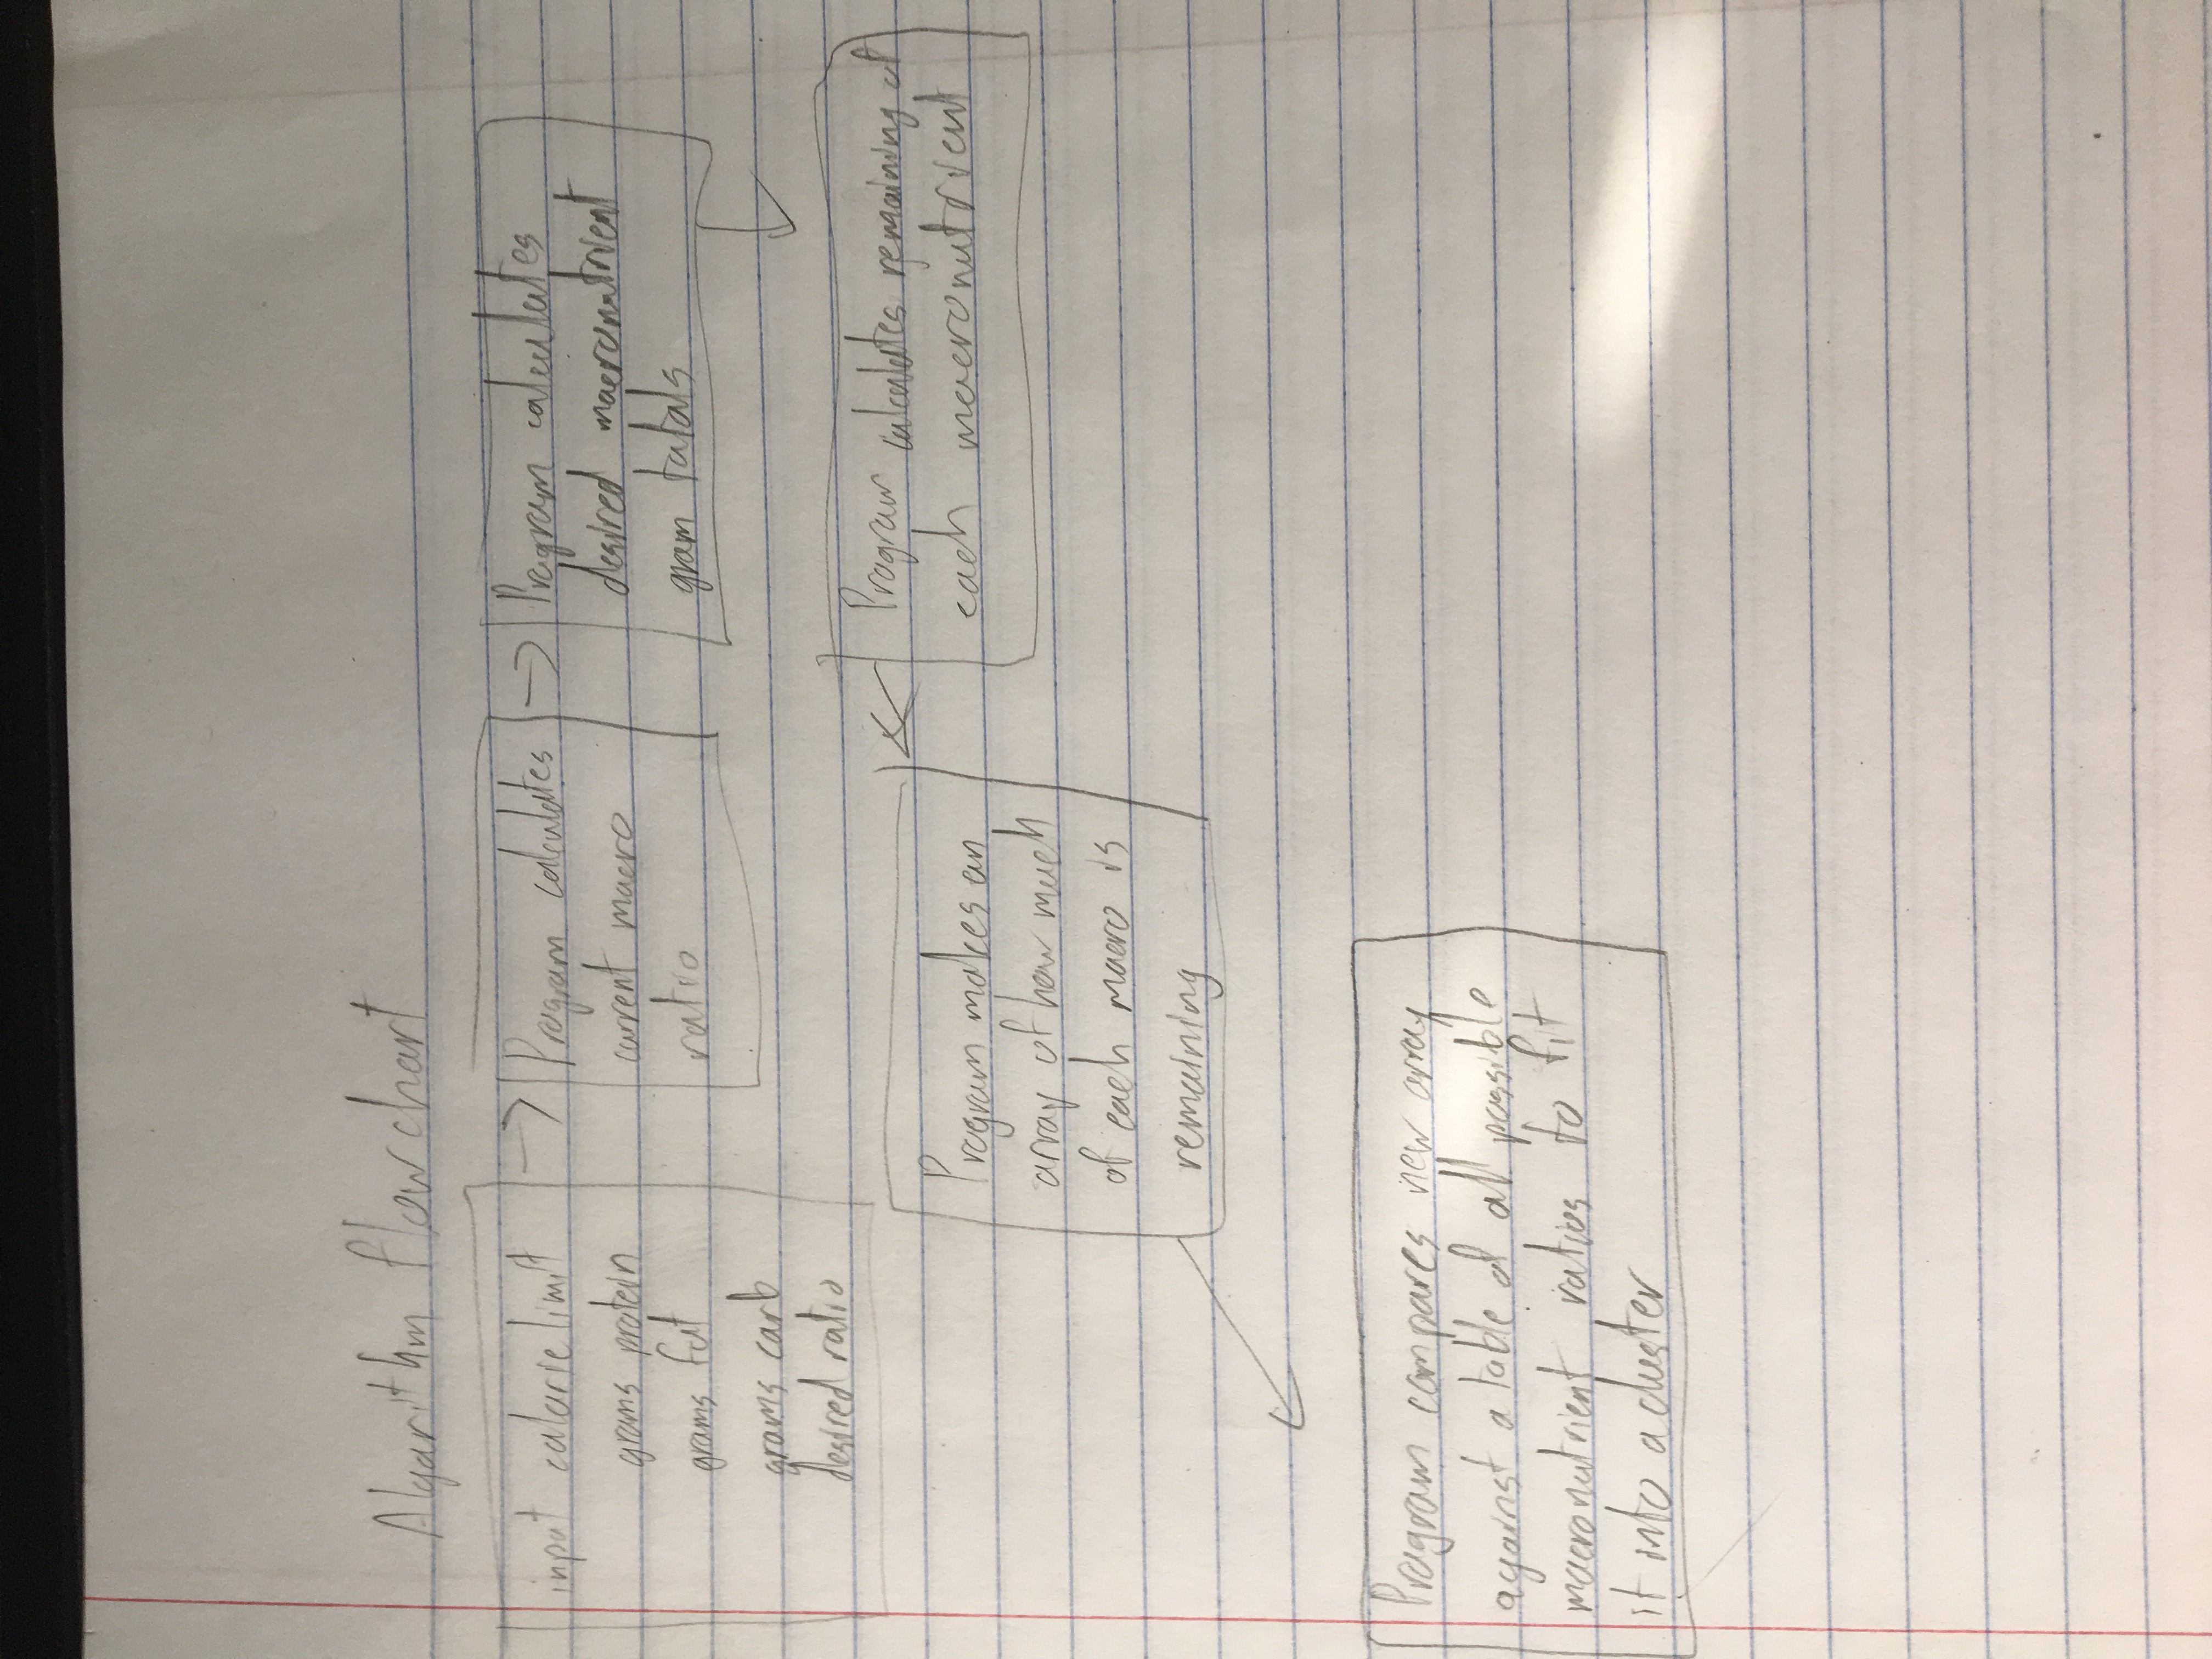 Algorithm flowchart
input calorie limit
grams protein
grams fat
grams carb
desired ratio
Program calculates
current macro
ratio
Program calculates
desired macronutrient
gram totals
Program calculates remaining of
each macronutrient
Program makes an
array of how much
of each macro is
remaining
Program compares new array
against a table of all possible
macronutrient ratios to fit
it into a cluster